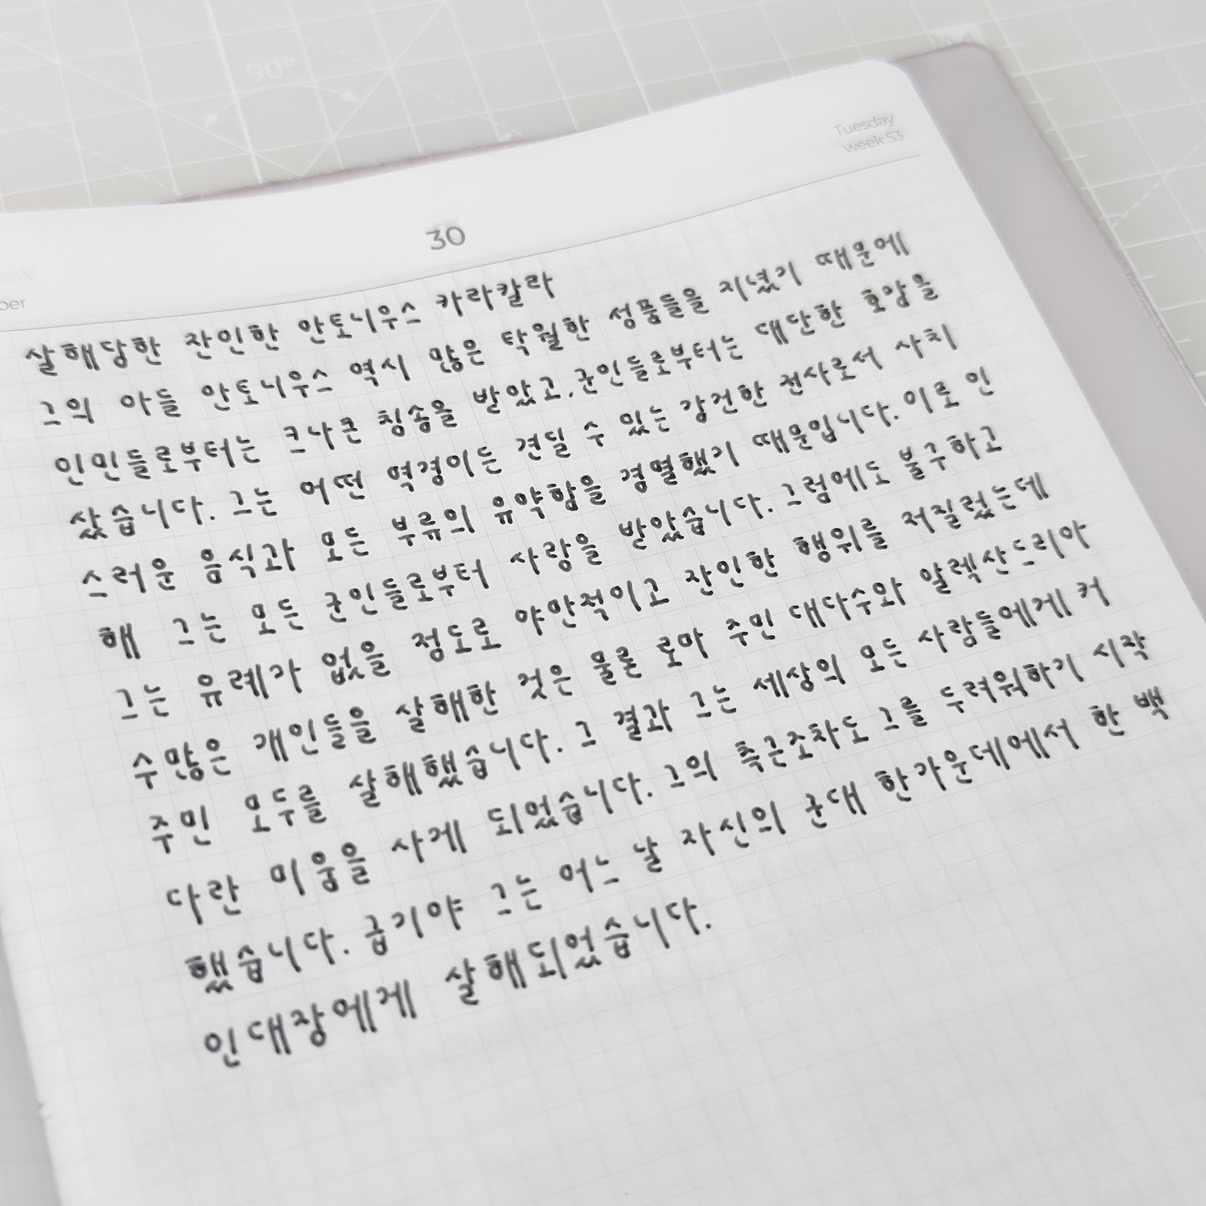 90°
Tuesday
week 53
30
살해당한 잔인한 안토니우스 카라칼라
그의 아들 안토니우스 역시 많은 탁월한 성품들을 지녔기 때문에
인민들로부터는 크나큰 칭송을 받았고, 군인들로부터는 대단한 호감을
샀습니다. 그는 어떤 역경이든 견딜 수 있는 강건한 전사로서 사치
스러운 음식과 모든 부류의 유약함을 경멸했기 때문입니다. 이로 인
해 그는 모든 군인들로부터 사랑을 받았습니다. 그럼에도 불구하고
그는 유례가 없을 정도로 야만적이고 잔인한 행위를 저질렀는데
수많은 개인들을 살해한 것은 물론 로마 주민 대다수와 알렉산드리아
주민 모두를 살해했습니다. 그 결과 그는 세상의 모든 사람들에게 커
다란 미움을 사게 되었습니다. 그의 측근조차도 그를 두려워하기 시작
했습니다. 급기야 그는 어느 날 자신의 군대 한가운데에서 한 백
인대장에게 살해되었습니다.